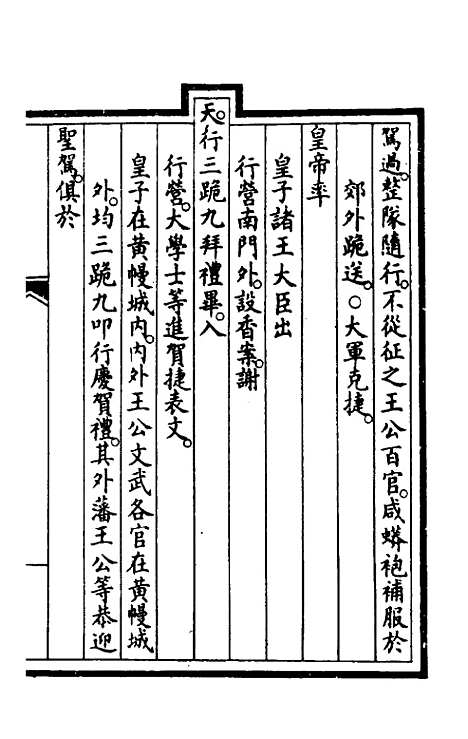 駕過。整隊隨行。不從征之王公百官。咸蟒袍補服於
郊外跪送。○大軍克捷。
皇帝率
皇子諸王大臣出
行營南門外。設香案。謝
天。行三跪九拜禮畢。入
行營。大學士等進賀捷表文。
皇子在黄幔城内。内外王公文武各官在黄幔城
外。均三跪九叩行慶賀禮。其外藩王公等恭迎
聖駕。俱於